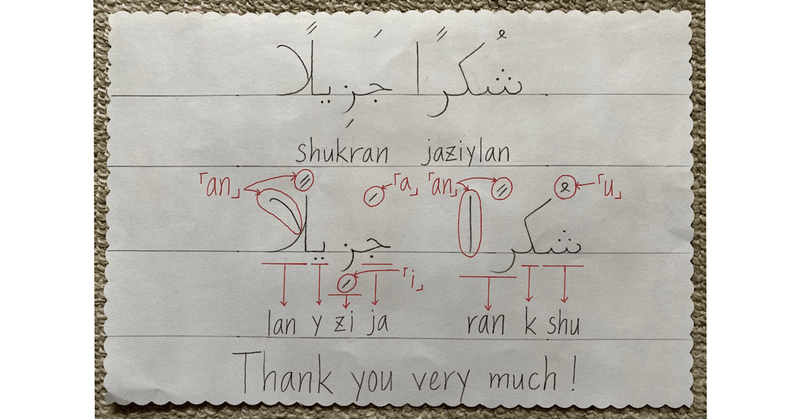 شُكرًا جَزِيلًا
shukran jaziylan
「an」 「a」 「an」 「u」
شكرا جزيلا
「i」
lan y zi ja ran k shu
Thank you very much!